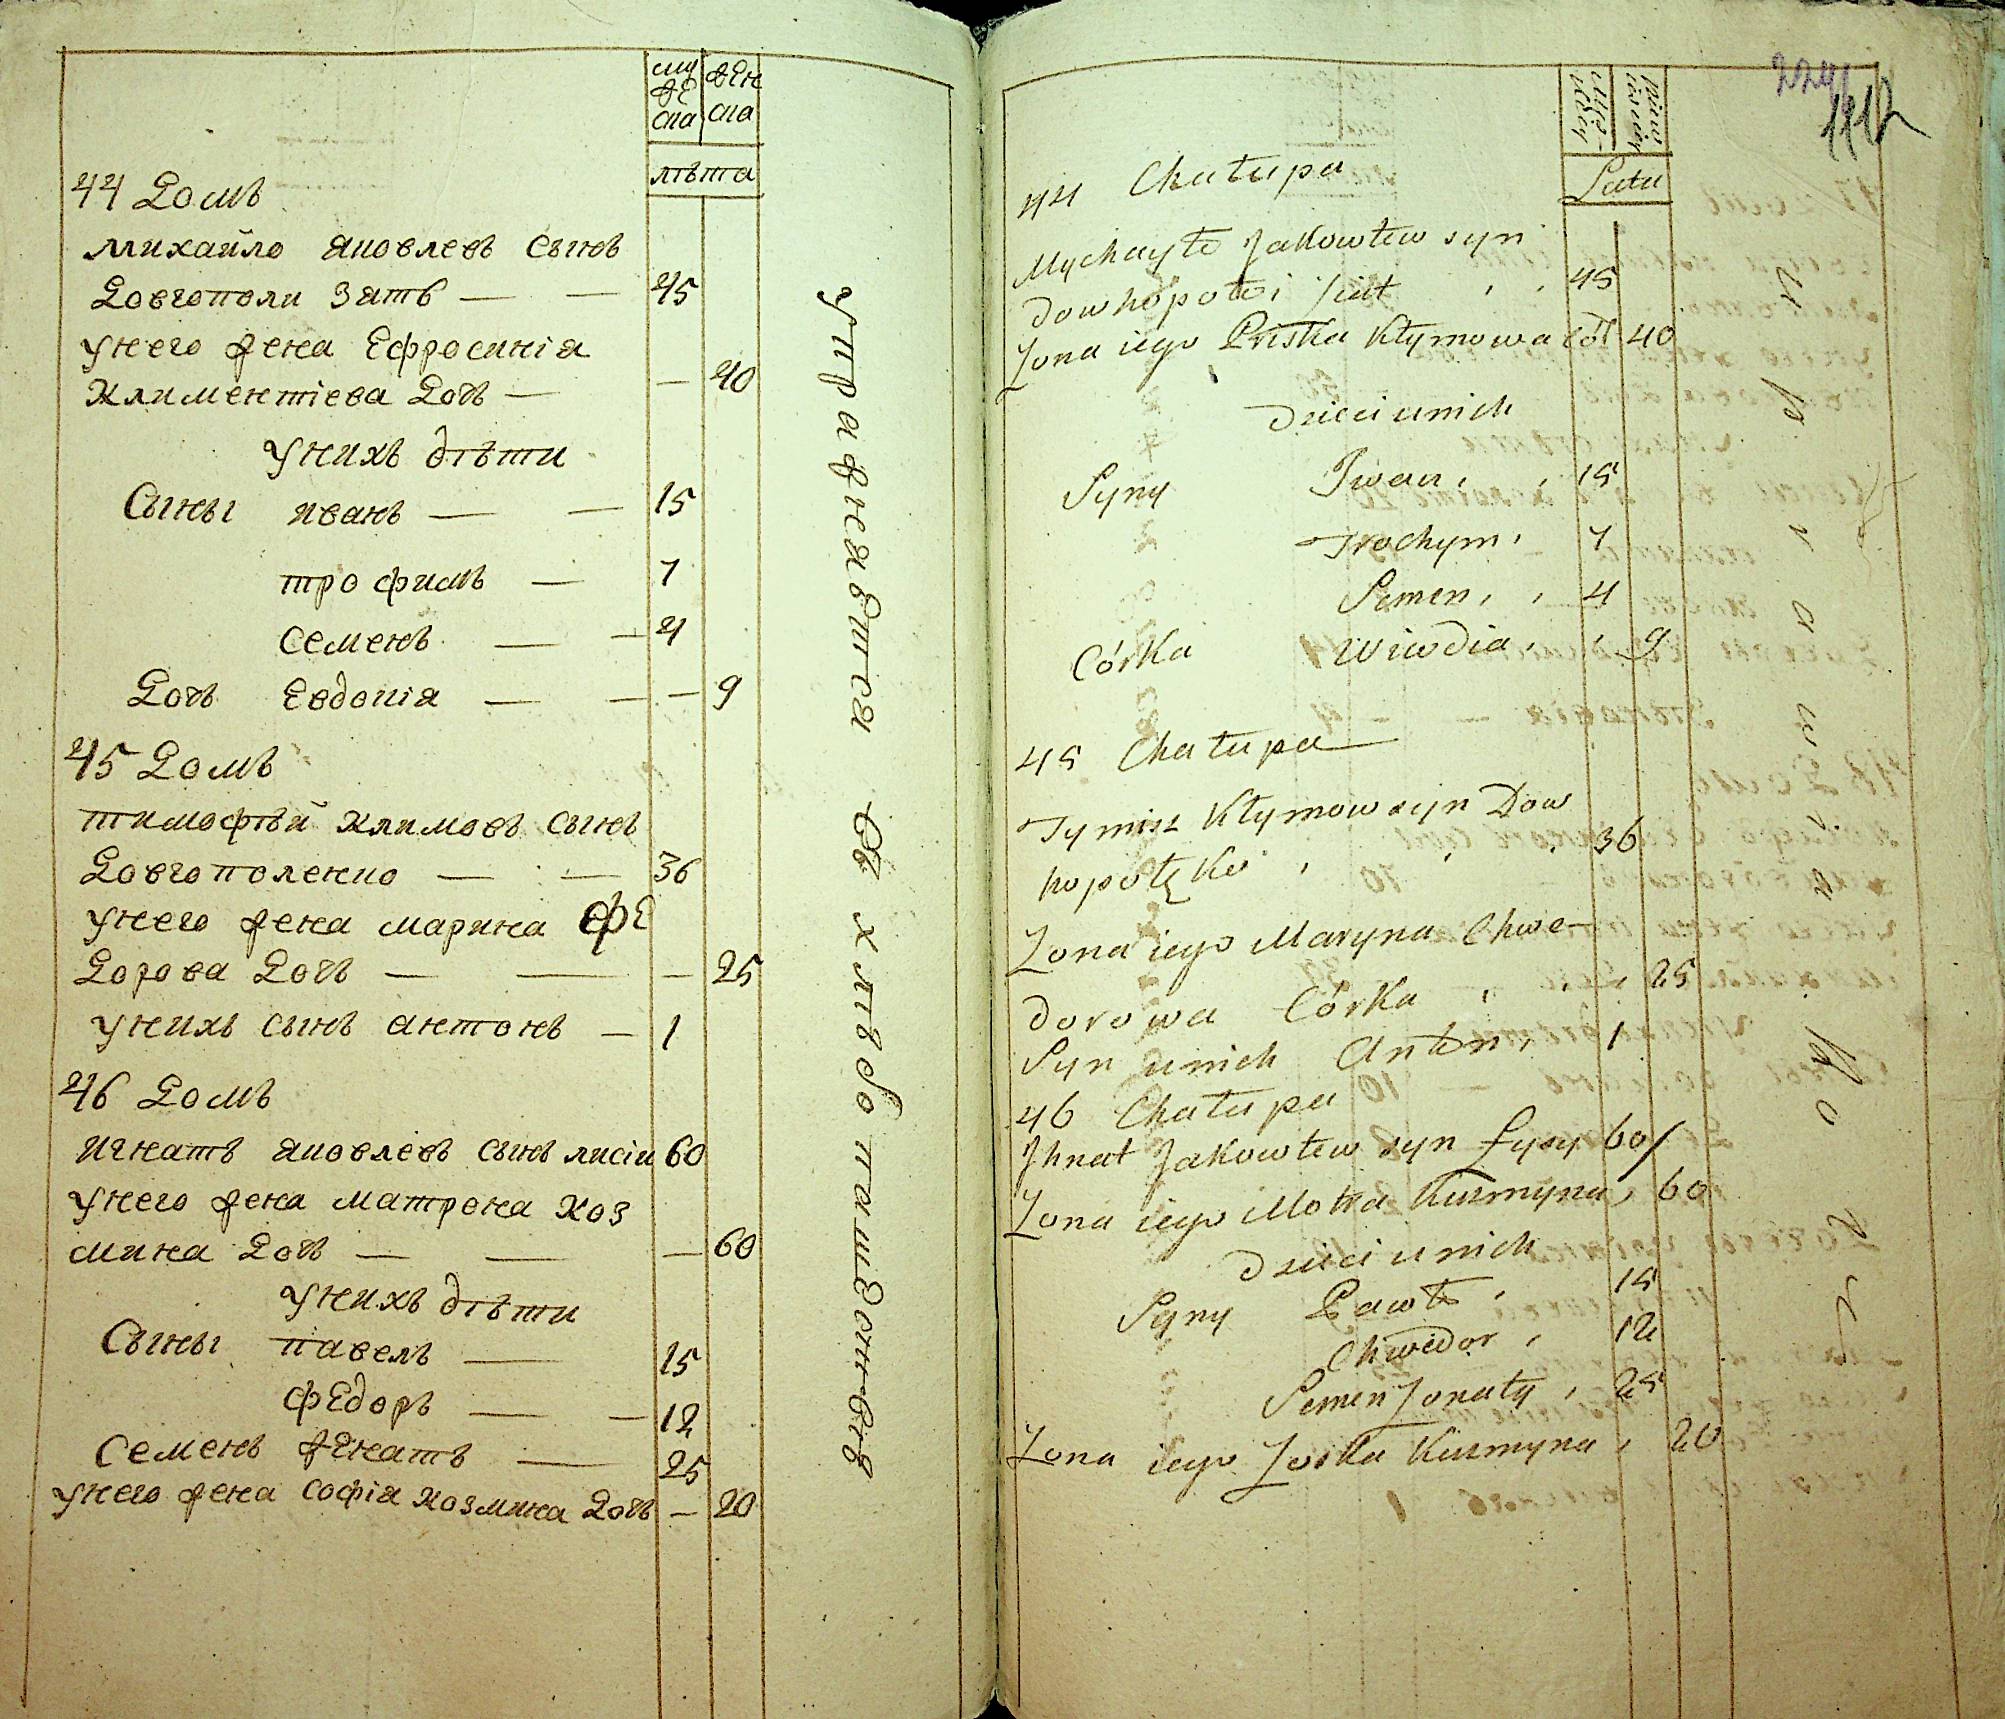 муже
ска
жен
ска
лѣта
44 Домъ
михайло яковлевъ сынъ
Довгополи зять — — 45
унего жена Ефросинія
Климентіева Дочь — — 40
унихъ дѣти
Сыны иванъ — — 15
трофимъ — 7
семенъ — — 4
Дочь Евдокія — — — 9
45 Домъ
тимофѣй климовъ сынъ
Довгополенко — — 36
унего жена марина фе
Дорова Дочь — — — 25
унихъ сынъ антонъ — 1
46 Домъ
игнатъ яковлевъ сынъ лисіи 60
унего жена матрона коз
мина Дочь — — — 60
унихъ дѣти
Сыны павелъ — 15
федоръ — — 12
Семенъ женатъ — 25
унего жена софія козмина Дочь — 20
упражняется въ хлѣбопашественѣ
44 Chałupa
Latu
Mychayło Jakowlew syn
Dowhopołoi Ziat 45
Zona iego Priska Kłymowa cór 40
Dzieci unich
Syny Iwan 15
Trochym 7
Semen 4
Córka Wiwdia 9
45 Chałupa
Tymisz Kłymow syn Dow
hopołęko 36
Zona iego Maryna Chwe-
dorowa Córka 25
Syn unich Anton 1
46 Chałupa
Ihnat Jakowlew syn Łysy 60
Zona iego Motra Kuzmyna 60
Dzieci unich
Syny Pawło 15
Chwedor 12
Semen Zonaty 25
Zona iego Zoska Kuzmyna 20